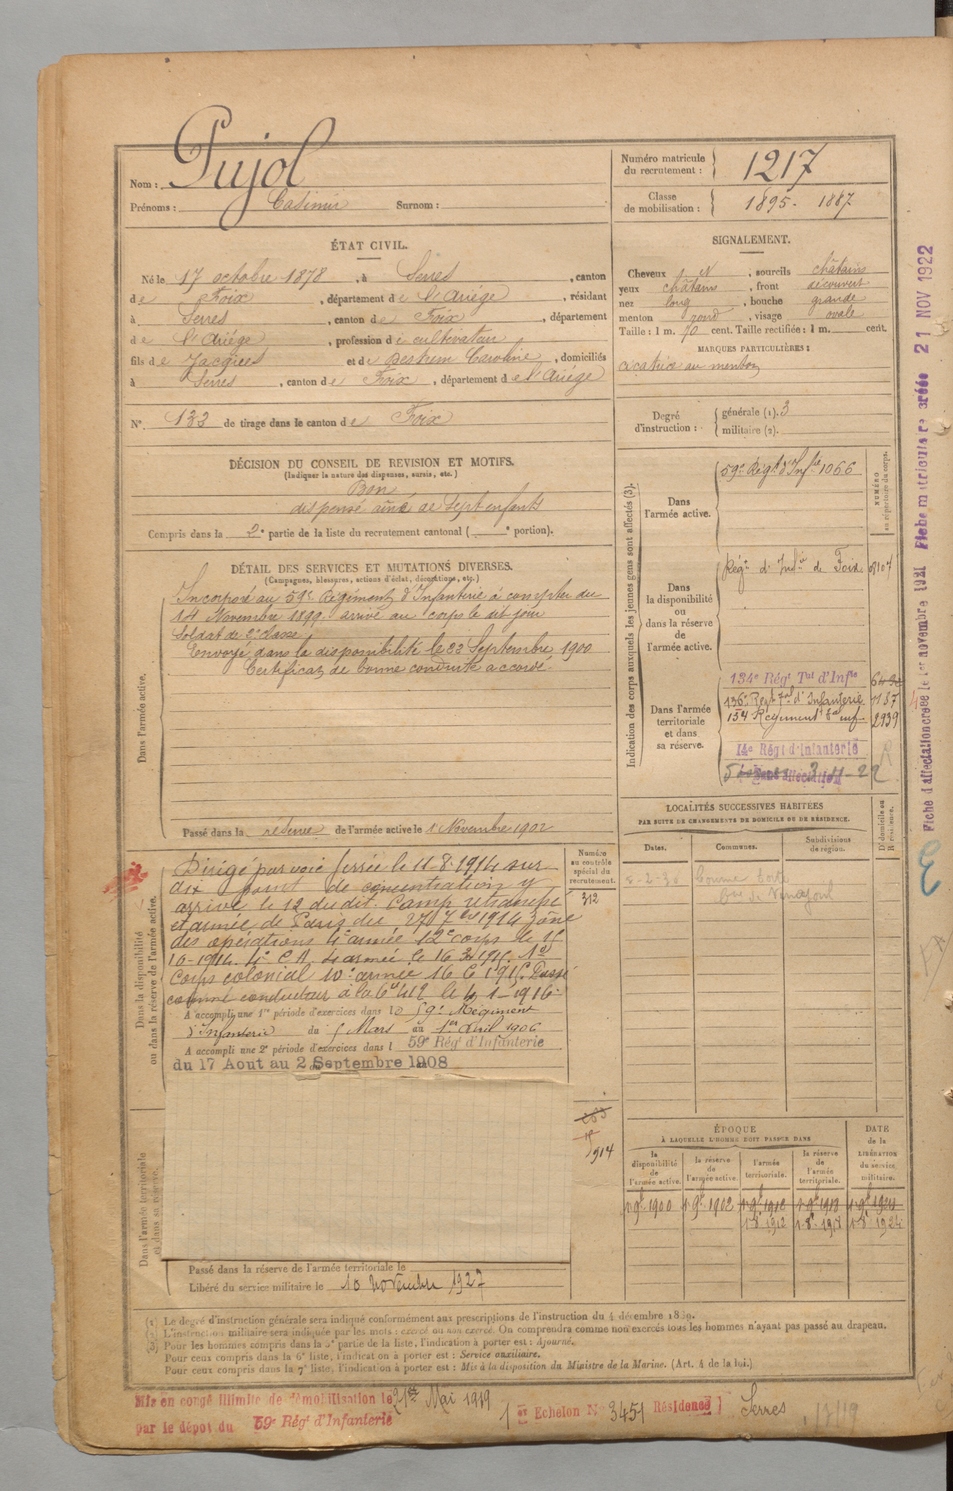 Nom : Pujol
Prénoms : Casimir Surnom :
Numéro matricule du recrutement : 1217
Classe de mobilisation : 1895. 1887
ÉTAT CIVIL.
Né le 17 octobre 1878, à Serres, canton
de Foix, département de l'Ariége, résidant
à Serres, canton de Foix, département
de l'Ariége, profession de cultivateur
fils de Jacques et de , domiciliés
à Serres, canton de Foix, département de l'Ariége
N° 133 de tirage dans le canton de Foix
SIGNALEMENT.
Cheveux N, sourcils châtains
yeux châtains, front découvert
nez long, bouche grande
menton rond, visage ovale
Taille : 1 m. 70 cent. Taille rectifiée : 1 m. cent.
MARQUES PARTICULIÈRES :
cicatrice au menton
Degré d'instruction : générale (1). 3
militaire (2).
DÉCISION DU CONSEIL DE REVISION ET MOTIFS.
(Indiquer la nature des dispenses, sursis, etc.)
Bon
dispensé aîné de sept enfants
Compris dans la 2e partie de la liste du recrutement cantonal ( e portion).
DÉTAIL DES SERVICES ET MUTATIONS DIVERSES.
(Campagnes, blessures, actions d'éclat, décorations, etc.)
Dans l'armée active.
Incorporé au 59e Régiment d'Infanterie à compter du
14 Novembre 1899. arrivé au corps le dit jour
Soldat de 2e classe
Envoyé dans la disponibilité le 22 Septembre 1900
Certificat de bonne conduite accordé
Passé dans la réserve de l'armée active le 1 Novembre 1902
Indication des corps auxquels les jeunes gens sont affectés (3).
NUMÉRO au répertoire du corps.
Dans l'armée active.
59e Régt d'Infie 1066
Dans la disponibilité ou dans la réserve de l'armée active.
Régt d'Infie de Foix
Dans l'armée territoriale et dans sa réserve.
134e Régt Tal d'Infie
136e Régt Tal d'Infanterie 1187
154 Régiment tal inf 2939
14e Régt d'Infanterie
Sans affectation
LOCALITÉS SUCCESSIVES HABITÉES
PAR SUITE DE CHANGEMENTS DE DOMICILE OU DE RÉSIDENCE.
Dates. Communes. Subdivisions de région. D' domicile ou R' résidence.
Dans la disponibilité ou dans la réserve de l'armée active.
Numéro au contrôle spécial du recrutement.
312
Dirigé par voie ferrée le 11-8-1914 sur
dix point de concentration y
arrivé le 12 du dit. Camp retranché
et armée de Paris du 27 1914 zône
des opérations 4e armée 12e corps le
10-1914. 4e C.A. 4e armée le 16 3 1915. 1er
Corps colonial 10e armée 16 6 1915. Passé
comme conducteur à la le 4-1-1916.
A accompli une 1re période d'exercices dans le 59e Régiment
d'Infanterie du 5 Mars au 1er Avril 1906
A accompli une 2e période d'exercices dans l 59e Régt d'Infanterie
du 17 Aout au 2 Septembre 1908
914
Dans l'armée territoriale et dans sa réserve.
Passé dans la réserve de l'armée territoriale le
Libéré du service militaire le 10 novembre 1927
ÉPOQUE
À LAQUELLE L'HOMME DOIT PASSER DANS
DATE de la LIBÉRATION du service militaire.
la disponibilité de l'armée active. la réserve de l'armée active. l'armée territoriale. la réserve de l'armée territoriale.
1 9bre 1900 1 9bre 1902 1 9bre 1912 1 9bre 1918
1 8e 1912 1 8e 1918 1 8e 1924
(1) Le degré d'instruction générale sera indiqué conformément aux prescriptions de l'instruction du 4 décembre 1889.
(2) L'instruction militaire sera indiquée par les mots : exercé ou non exercé. On comprendra comme non exercés tous les hommes n'ayant pas passé au drapeau.
(3) Pour les hommes compris dans la 5e partie de la liste, l'indication à porter est : Ajourné.
Pour ceux compris dans la 6e liste, l'indication à porter est : Service auxiliaire.
Pour ceux compris dans la 7e liste, l'indication à porter est : Mis à la disposition du Ministre de la Marine. (Art. 4 de la loi.)
Mis en congé illimité de démobilisation le 21 Mai 1919
par le dépôt du 59e Régt d'Infanterie
1er Echelon N° 3451 Résidence Serres
Fiche d'affectation créée le 1er novembre 1921 Fiche matricule créée 21 NOV 1922